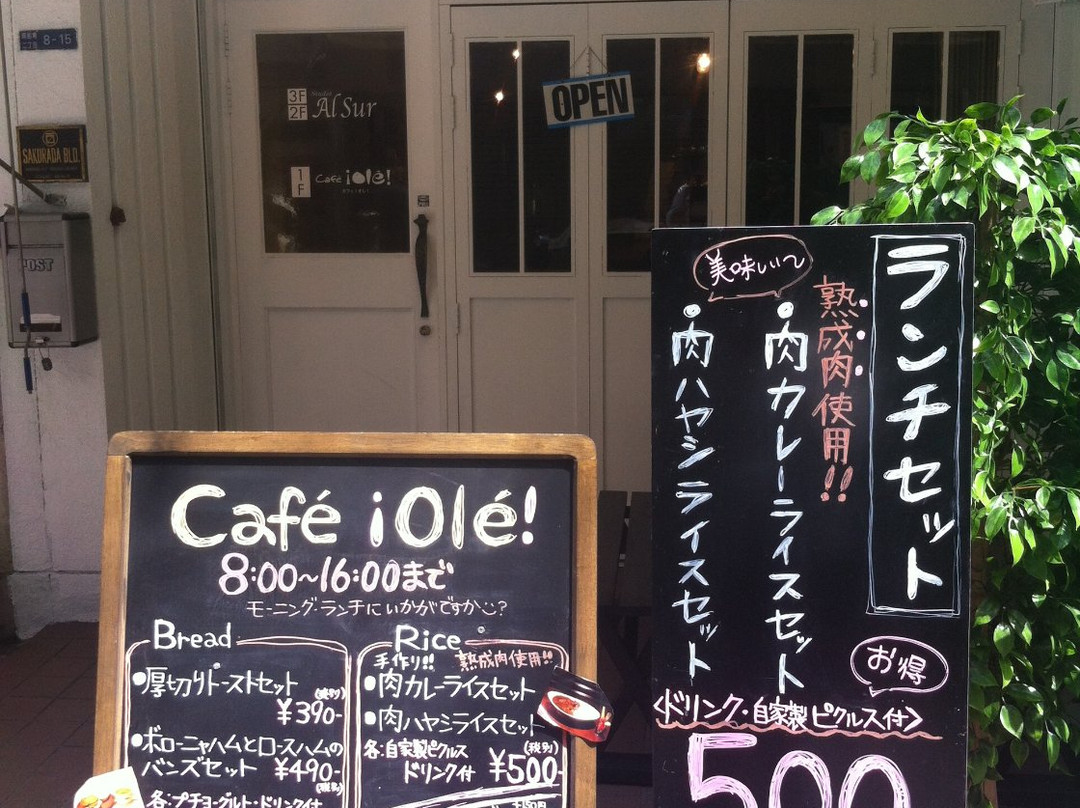 8-15
SAKURADA BLD.
POST
3F
2F
Studio
Al Sur
1F
Café ¡Olé!
OPEN
ランチセット
熟成肉使用!!
美味しい〜
・肉カレーライスセット
・肉ハヤシライスセット
お得
<ドリンク・自家製ピクルス付>
500
Café ¡Olé!
8:00〜16:00まで
モーニング・ランチにいかがですか?
Bread
・厚切りトーストセット
(税別)
¥390-
・ボローニャハムとロースハムの
バンズセット ¥490-
(税別)
各:プチヨーグルト・ドリンク付
Rice
手作り!! 熟成肉使用!!
・肉カレーライスセット
・肉ハヤシライスセット
各:自家製ピクルス
ドリンク付
(税別)
¥500-
+150円